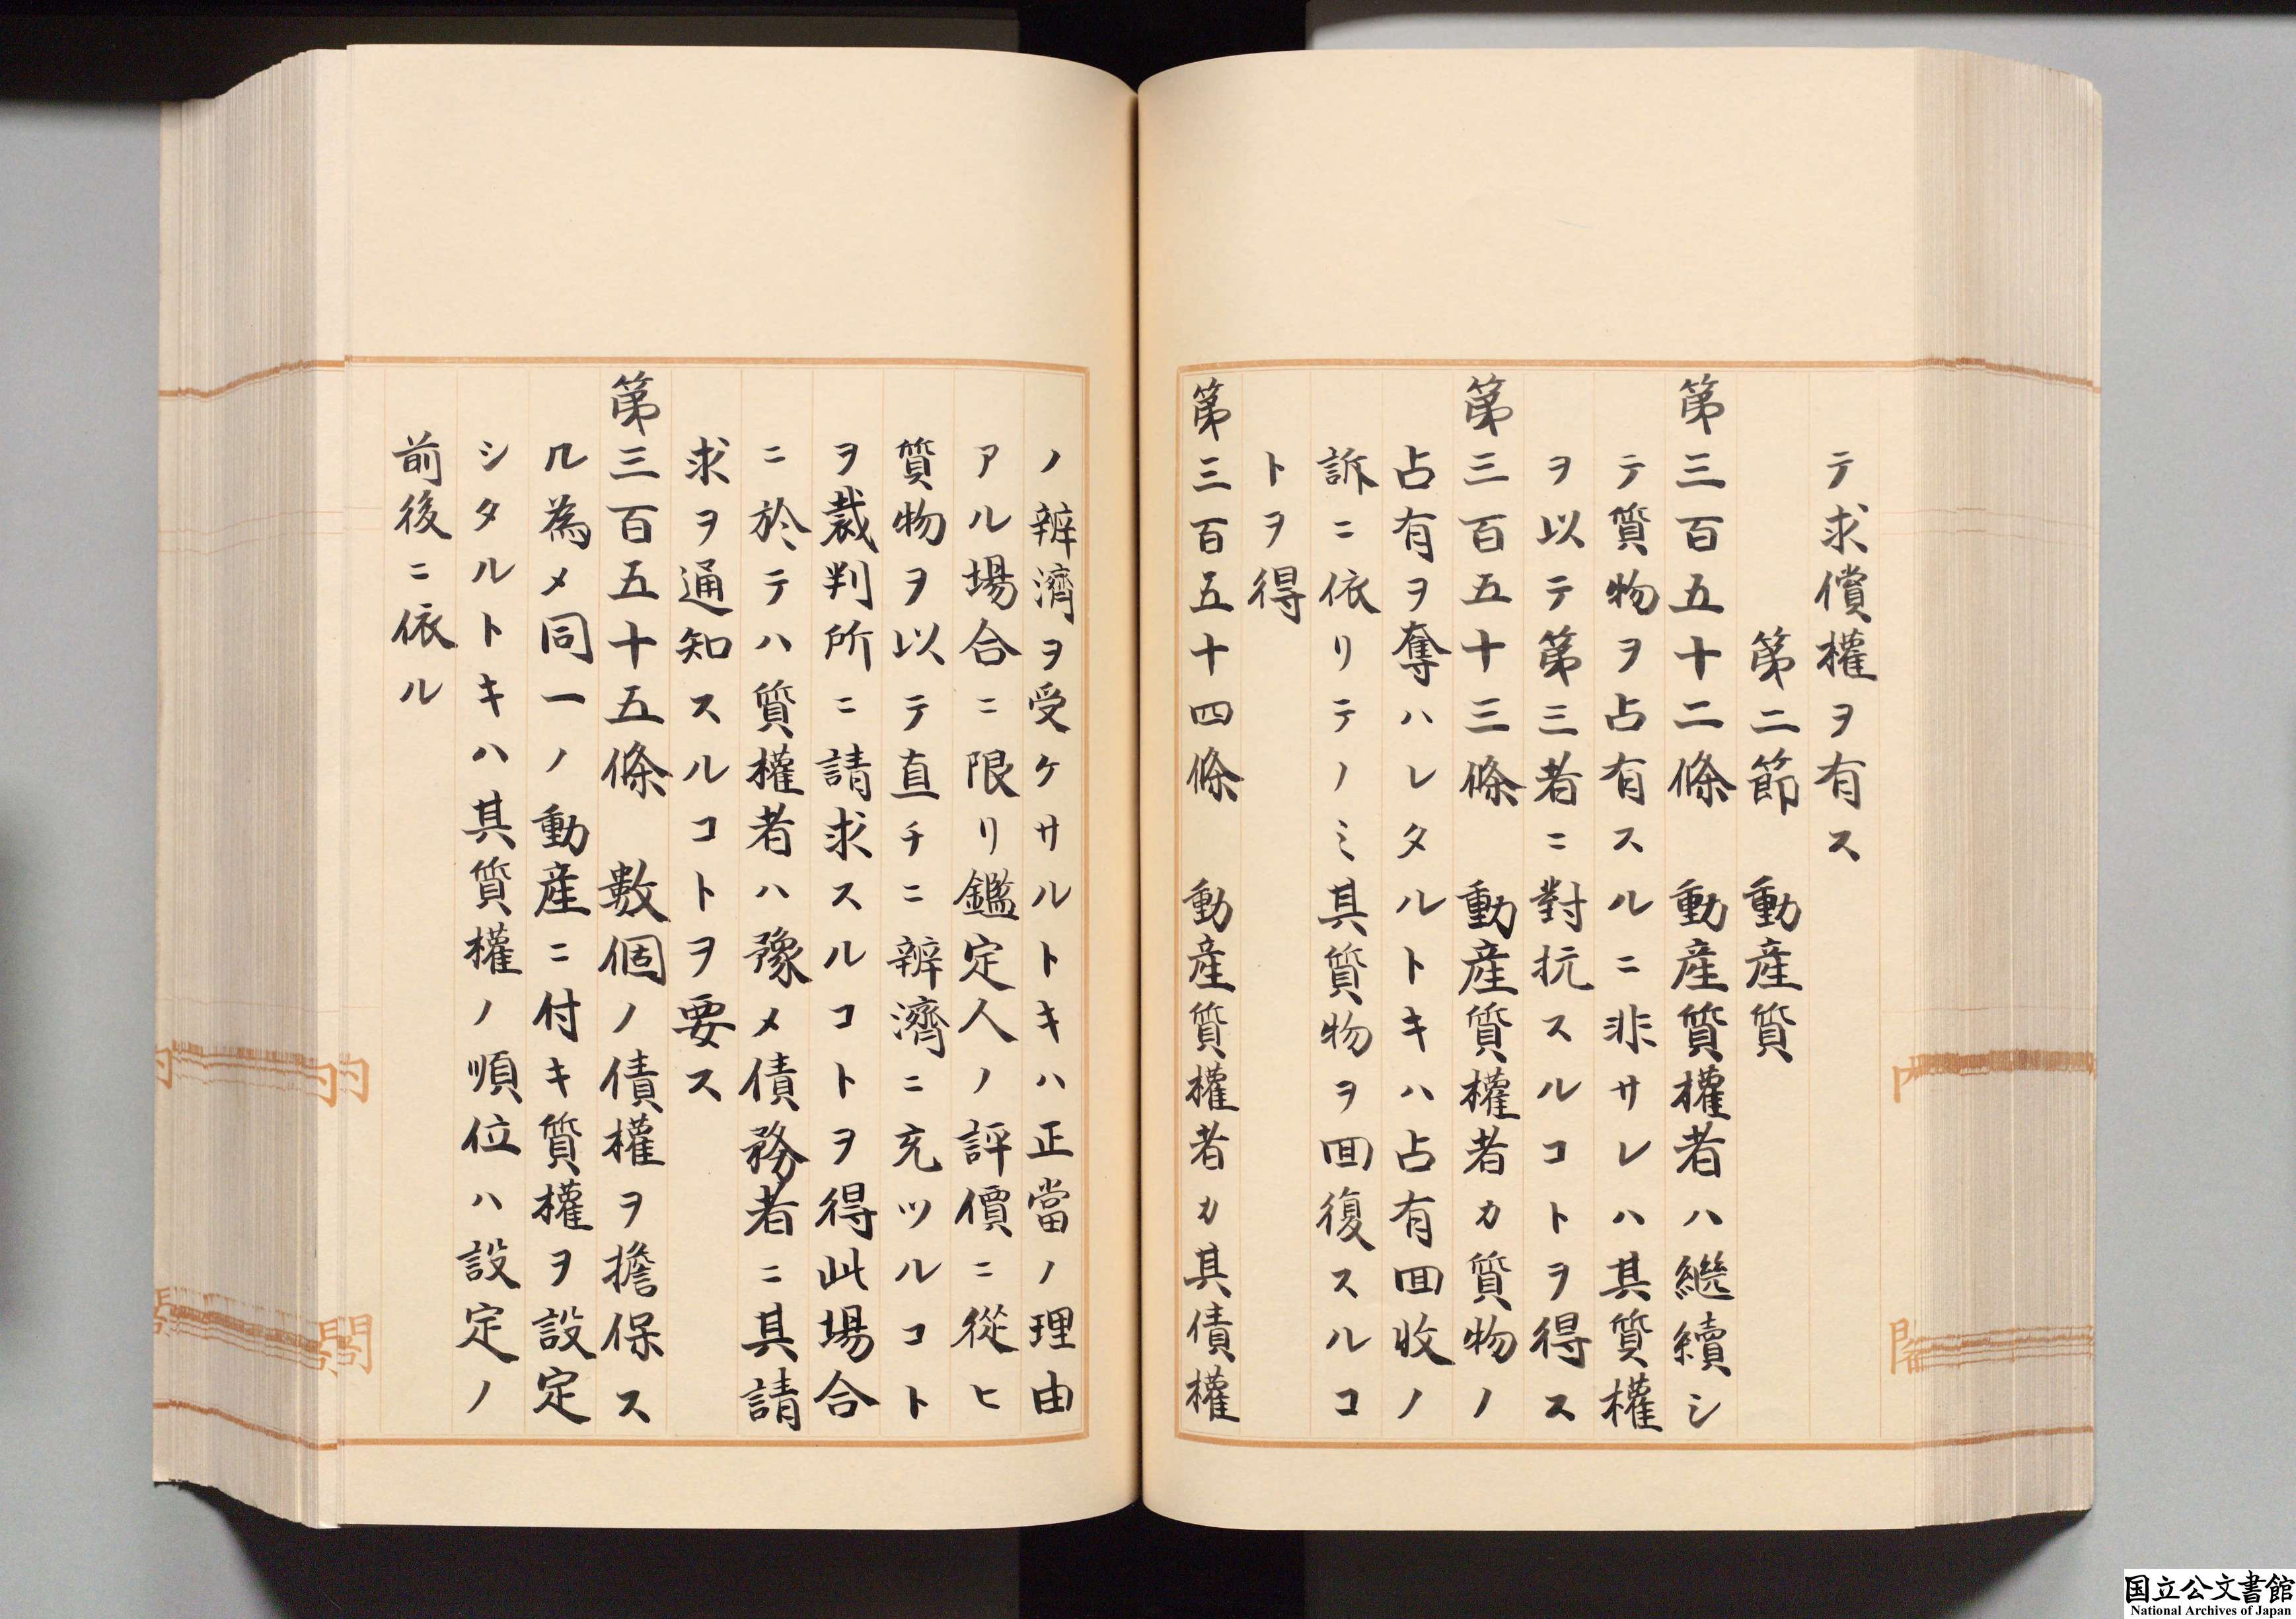 テ求償權ヲ有ス
第二節　動產質
第三百五十二條　動產質權者ハ繼續シ
テ質物ヲ占有スルニ非サレハ其質權
ヲ以テ第三者ニ對抗スルコトヲ得ス
第三百五十三條　動產質權者カ質物ノ
占有ヲ奪ハレタルトキハ占有回收ノ
訴ニ依リテノミ其質物ヲ回復スルコ
トヲ得
第三百五十四條　動產質權者カ其債權
ノ辨濟ヲ受ケサルトキハ正當ノ理由
アル場合ニ限リ鑑定人ノ評價ニ從ヒ
質物ヲ以テ直チニ辨濟ニ充ツルコト
ヲ裁判所ニ請求スルコトヲ得此場合
ニ於テハ質權者ハ豫メ債務者ニ其請
求ヲ通知スルコトヲ要ス
第三百五十五條　數個ノ債權ヲ擔保ス
ル為メ同一ノ動產ニ付キ質權ヲ設定
シタルトキハ其質權ノ順位ハ設定ノ
前後ニ依ル
国立公文書館
National Archives of Japan